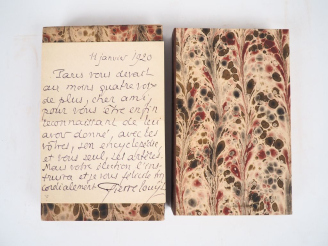 11 janvier 1920
Paris vous devait
au moins quatre voix
de plus, cher ami,
pour vous être enfin
reconnaissant de lui
avoir donné, avec les
vôtres, son encyclopédie,
et vous seul, ses artères.
Mais votre élection l'ins-
truira et je vous félicite fin
cordialement Pierre Louÿs